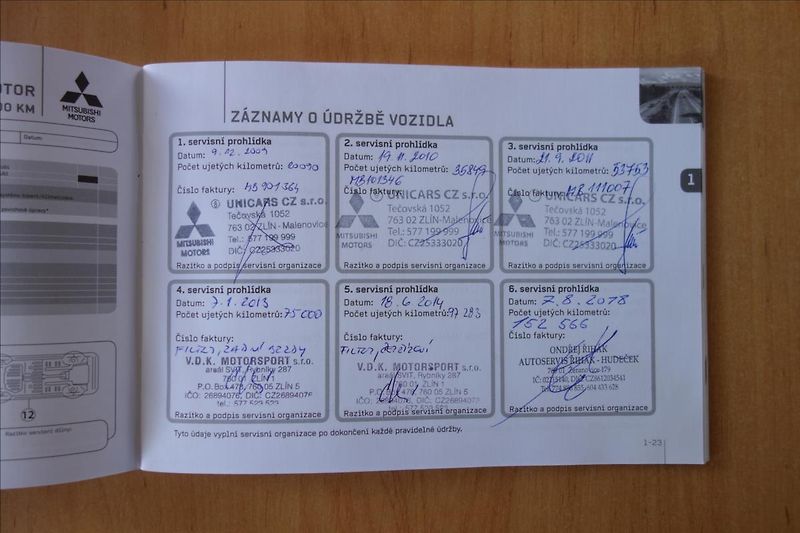 OTOR
00 KM
MITSUBISHI
MOTORS
Datum:
12
Razítko servisní dílny:
ZÁZNAMY O ÚDRŽBĚ VOZIDLA
1
1. servisní prohlídka
Datum: 9.12.2009
Počet ujetých kilometrů: 20090
Číslo faktury: MB901364
UNICARS CZ s.r.o.
Tečovská 1052
763 02 ZLÍN-Malenovice
Tel.: 577 199 999
DIČ: CZ25333020
MITSUBISHI
MOTORS
Razítko a podpis servisní organizace
2. servisní prohlídka
Datum: 19.11.2010
Počet ujetých kilometrů: 35849
MB101346
Číslo faktury:
UNICARS CZ s.r.o.
Tečovská 1052
763 02 ZLÍN-Malenovice
Tel.: 577 199 999
DIČ: CZ25333020
MITSUBISHI
MOTORS
Razítko a podpis servisní organizace
3. servisní prohlídka
Datum: 21.9.2011
Počet ujetých kilometrů: 53753
Číslo faktury: MB111007
UNICARS CZ s.r.o.
Tečovská 1052
763 02 ZLÍN-Malenovice
Tel.: 577 199 999
DIČ: CZ25333020
MITSUBISHI
MOTORS
Razítko a podpis servisní organizace
4. servisní prohlídka
Datum: 7.1.2013
Počet ujetých kilometrů: 75000
Číslo faktury:
FILTRY, ZADNÍ BRZDY
V.D.K. MOTORSPORT s.r.o.
areál SVIT, Rybníky 287
760 01 ZLÍN 1
P.O. Box 478, 760 05 ZLÍN 5
IČO: 26894076, DIČ: CZ26894076
tel.: 577 523 523
Razítko a podpis servisní organizace
5. servisní prohlídka
Datum: 18.6.2014
Počet ujetých kilometrů: 97283
Číslo faktury:
V.D.K. MOTORSPORT s.r.o.
areál SVIT, Rybníky 287
760 01 ZLÍN 1
P.O. Box 478, 760 05 ZLÍN 5
IČO: 26894076, DIČ: CZ26894076
Razítko a podpis servisní organizace
6. servisní prohlídka
Datum: 7.8.2018
Počet ujetých kilometrů:
152 566
Číslo faktury:
ONDŘEJ ŘIHÁK
AUTOSERVIS ŘIHÁK - HUDEČEK
Razítko a podpis servisní organizace
Tyto údaje vyplní servisní organizace po dokončení každé pravidelné údržby.
1-23